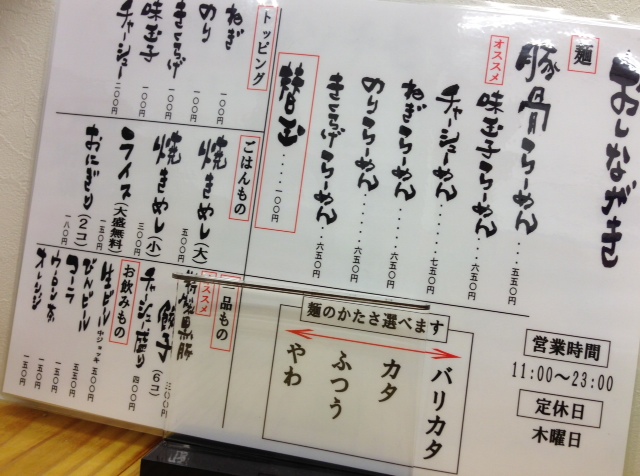 おしながき
麺
豚骨らーめん……五五〇円
オススメ
味玉子らーめん……六五〇円
チャーシューめん……七五〇円
ねぎらーめん……六五〇円
のりらーめん……六五〇円
きくらげらーめん……六五〇円
替玉……一〇〇円
トッピング
ねぎ 一〇〇円
のり 一〇〇円
きくらげ 一〇〇円
味玉子 一〇〇円
チャーシュー 二〇〇円
ごはんもの
焼きめし(大) 五〇〇円
焼きめし(小) 三〇〇円
ライス(大盛無料) 一五〇円
おにぎり(2コ) 一八〇円
一品もの
オススメ
特製黒豚
餃子(6コ) 三〇〇円
チャーシュー盛り 四〇〇円
お飲みもの
生ビール 中ジョッキ 五〇〇円
びんビール 五〇〇円
コーラ 一五〇円
ウーロン茶 一五〇円
オレンジ 一五〇円
麺のかたさ選べます
バリカタ
カタ
ふつう
やわ
営業時間
11:00〜23:00
定休日
木曜日